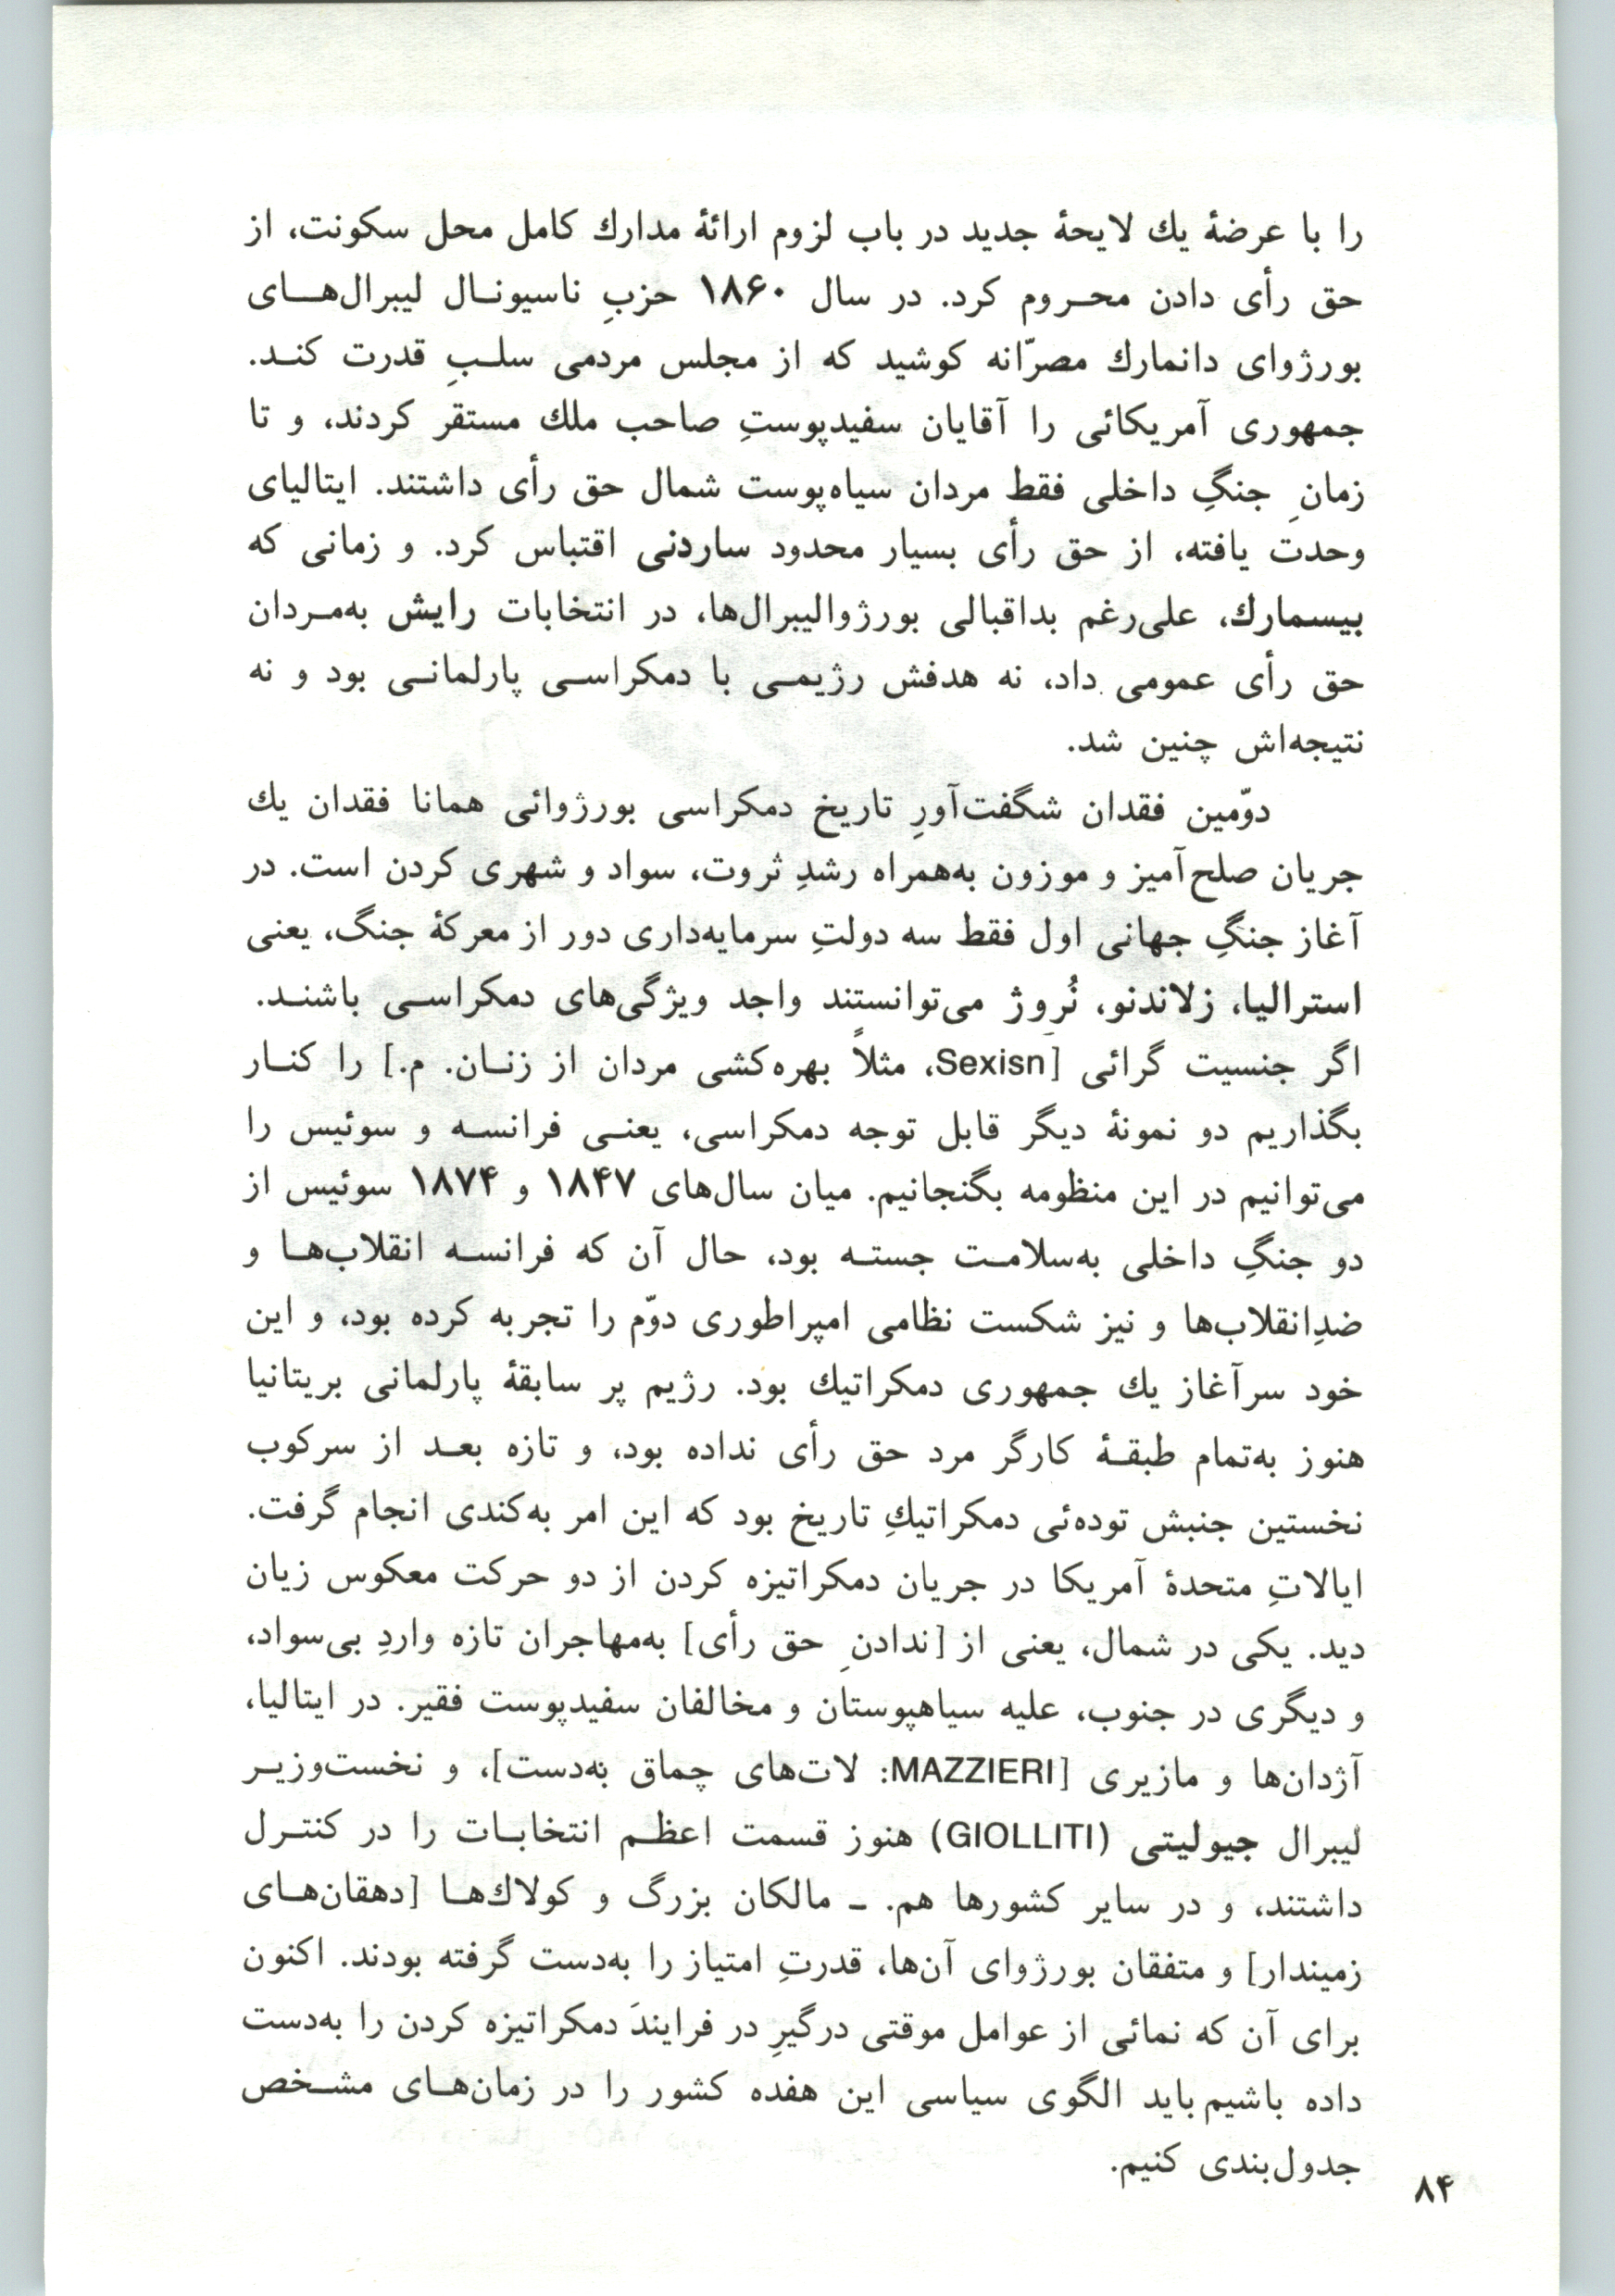 را با عرضهٔ یك لایحهٔ جدید در باب لزوم ارائهٔ مدارك کامل محل سکونت، از
حق رأی دادن محـروم کرد. در سال ۱۸۶۰ حزبِ ناسیونـال لیبرال‌هـای
بورژوای دانمارك مصرّانه کوشید که از مجلس مردمی سلـبِ قدرت کنـد.
جمهوری آمریکائی را آقایان سفیدپوستِ صاحب ملك مستقر کردند، و تا
زمان ِ جنگِ داخلی فقط مردان سیاه‌پوست شمال حق رأی داشتند. ایتالیای
وحدت یافته، از حق رأی بسیار محدود ساردنی اقتباس کرد. و زمانی که
بیسمارك، علی‌رغم بداقبالی بورژوالیبرال‌ها، در انتخابات رایش به‌مـردان
حق رأی عمومی داد، نه هدفش رژیمـی با دمکراسـی پارلمانـی بود و نه
نتیجه‌اش چنین شد.
دوّمین فقدان شگفت‌آورِ تاریخ دمکراسی بورژوائی همانا فقدان یك
جریان صلح‌آمیز و موزون به‌همراه رشدِ ثروت، سواد و شهری کردن است. در
آغاز جنگِ جهانی اول فقط سه دولتِ سرمایه‌داری دور از معرکهٔ جنگ، یعنی
استرالیا، زلاندنو، نُروژ می‌توانستند واجد ویژگی‌های دمکراسـی باشنـد.
اگر جنسیت گرائی [Sexisn، مثلاً بهره‌کشی مردان از زنـان. م.] را کنـار
بگذاریم دو نمونهٔ دیگر قابل توجه دمکراسی، یعنـی فرانسـه و سوئیس را
می‌توانیم در این منظومه بگنجانیم. میان سال‌های ۱۸۴۷ و ۱۸۷۴ سوئیس از
دو جنگِ داخلی به‌سلامـت جستـه بود، حال آن که فرانسـه انقلاب‌هـا و
ضدِانقلاب‌ها و نیز شکست نظامی امپراطوری دوّم را تجربه کرده بود، و این
خود سرآغاز یك جمهوری دمکراتیك بود. رژیم پر سابقهٔ پارلمانی بریتانیا
هنوز به‌تمام طبقـهٔ کارگر مرد حق رأی نداده بود، و تازه بعـد از سرکوب
نخستین جنبش توده‌ئی دمکراتیكِ تاریخ بود که این امر به‌کندی انجام گرفت.
ایالاتِ متحدهٔ آمریکا در جریان دمکراتیزه کردن از دو حرکت معکوس زیان
دید. یکی در شمال، یعنی از [ندادن ِ حق رأی] به‌مهاجران تازه واردِ بی‌سواد،
و دیگری در جنوب، علیه سیاهپوستان و مخالفان سفیدپوست فقیر. در ایتالیا،
آژدان‌ها و مازیری [MAZZIERI: لات‌های چماق به‌دست]، و نخست‌وزیـر
لیبرال جیولیتی (GIOLLITI) هنوز قسمت اعظـم انتخابـات را در کنتـرل
داشتند، و در سایر کشورها هم. ـ مالکان بزرگ و کولاك‌هـا [دهقان‌هـای
زمیندار] و متفقان بورژوای آن‌ها، قدرتِ امتیاز را به‌دست گرفته بودند. اکنون
برای آن که نمائی از عوامل موقتی درگیرِ در فرایندَ دمکراتیزه کردن را به‌دست
داده باشیم باید الگوی سیاسی این هفده کشور را در زمان‌هـای مشـخص
جدول‌بندی کنیم.
۸۴